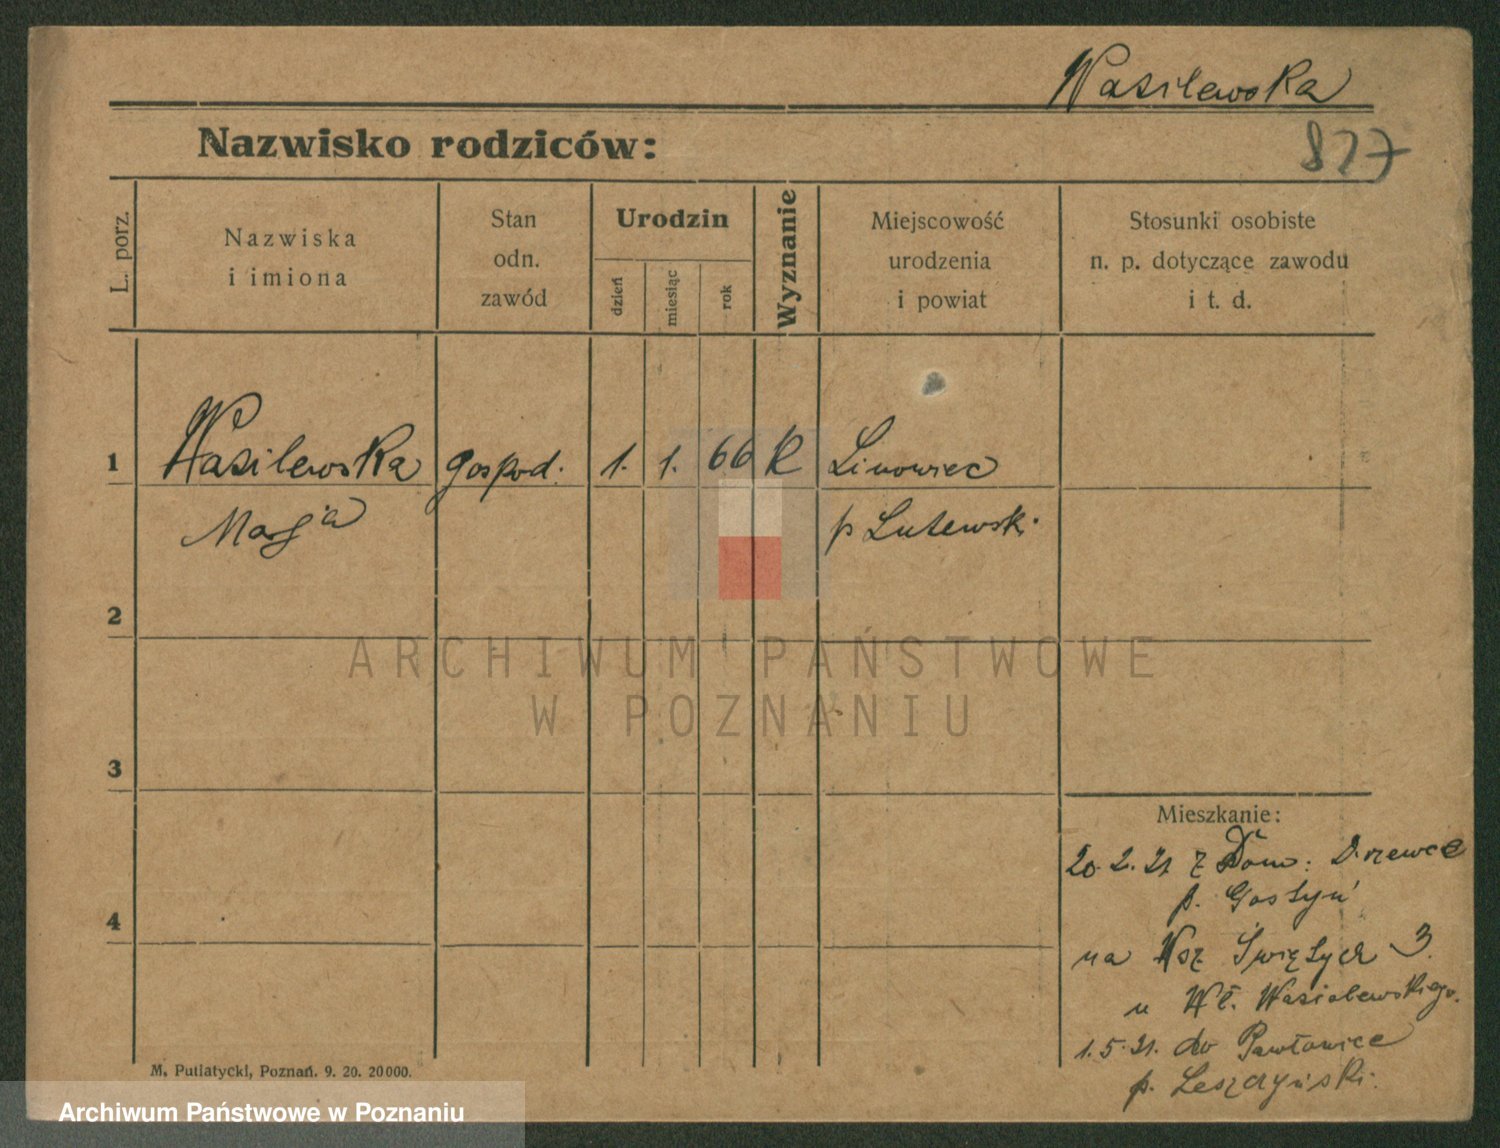 Wasilewska
827
Nazwisko rodziców:
L. porz.
Nazwiska
i imiona
Stan
odn.
zawód
Urodzin
dzień
miesiąc
rok
Wyznanie
Miejscowość
urodzenia
i powiat
Stosunki osobiste
n. p. dotyczące zawodu
i t. d.
1 Wasilewska gospod. 1. 1. 66 K Linowiec
Marja p Lutewski
2
ARCHIWUM PAŃSTWOWE
W POZNANIU
3
Mieszkanie:
20.2.21 z Dom: Drzewce
p. Gostyń
4
na Wsz Świętych 3.
u Wł. Wasialewskiego.
1.5.21. do Pawłowice
p. Leszczyński.
M. Putiatycki, Poznań. 9. 20. 20 000.
Archiwum Państwowe w Poznaniu